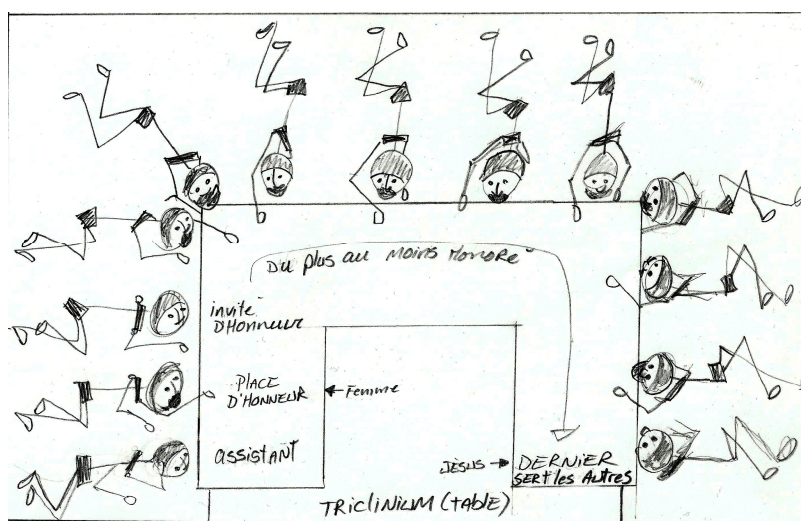 Du plus au moins Honoré
invité
D'Honneur
PLACE
D'HONNEUR
← Femme
assistant
JÉSUS →
DERNIER
SERT les Autres
TRICLINIUM (TABLE)